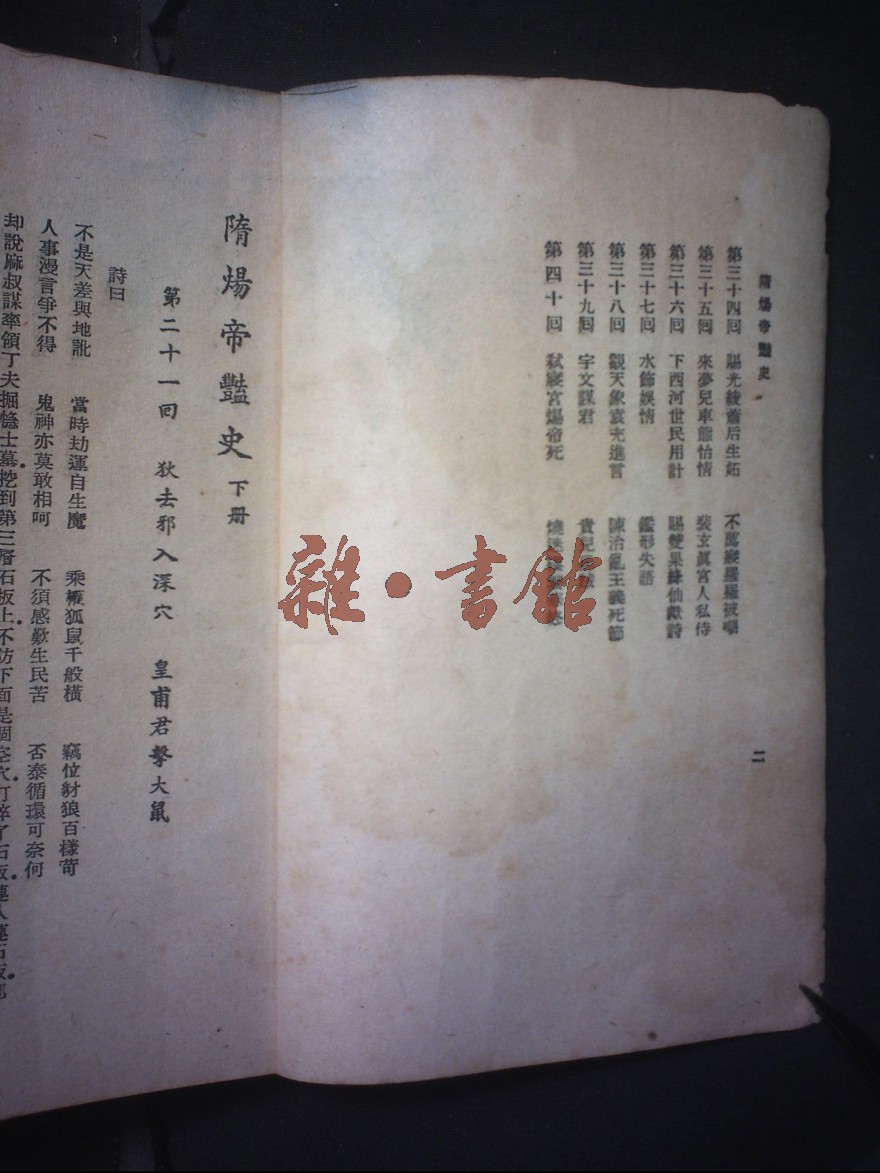 隋煬帝豔史
第三十四回　賜光綾蕭后生妬　不薦寢羅羅被嘲
第三十五回　來夢兒車態怡情　裴玄眞宮人私侍
第三十六回　下西河世民用計　賜雙果絳仙獻詩
第三十七回　水飾娛情　鑑形失語
第三十八回　觀天象袁充進言　陳治亂王義死節
第三十九回　宇文謀君　貴兒
第四十回　弒寢宮煬帝死　燒迷
二
雜·書館
隋煬帝豔史 下册
第二十一回　狄去邪入深穴　皇甫君擊大鼠
詩曰
不是天差與地訛　當時劫運自生魔　乘權狐鼠千般橫　竊位豺狼百樣苛
人事漫言爭不得　鬼神亦莫敢相呵　不須感歎生民苦　否泰循環可奈何
却說麻叔謀率領丁夫掘隱士墓挖到第三層石板上不防下面是個空穴打碎了石板連人連石板都